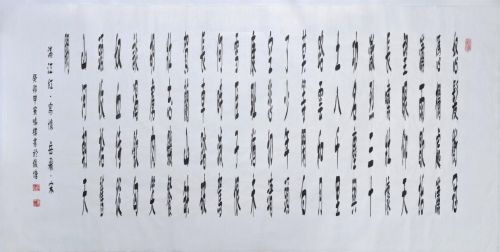 怒髮衝冠
憑欄處瀟
瀟雨歇抬
望眼仰天
長嘯壯懷
激烈三十
功名塵與
土八千里
路雲和月
莫等閒白
了少年頭
空悲切靖
康恥猶未
雪臣子恨
何時滅駕
長車踏破
賀蘭山缺
壯志飢餐
胡虜肉笑
談渴飲匈
奴血待從
頭收拾舊
山河朝天
闕
滿江紅·寫懷 岳飛·宋
癸卯甲寅 書於